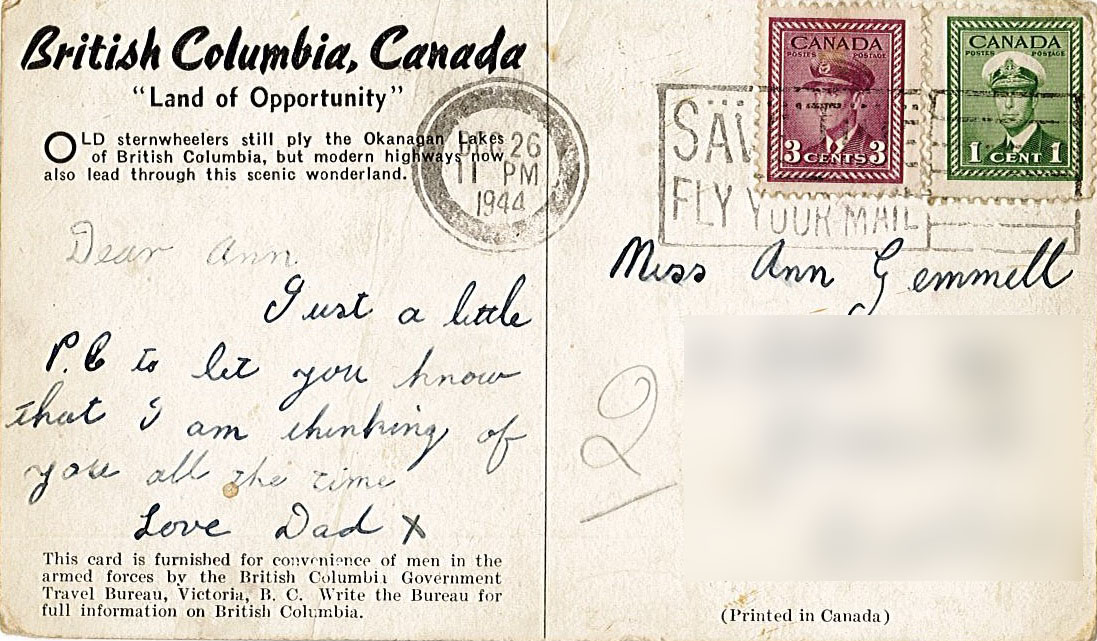 British Columbia, Canada
"Land of Opportunity"
OLD sternwheelers still ply the Okanagan Lakes
of British Columbia, but modern highways now
also lead through this scenic wonderland.
26
11 PM
1944
SAV
FLY YOUR MAIL
CANADA
POSTES POSTAGE
3 CENTS 3
CANADA
POSTES POSTAGE
1 CENT 1
Dear Ann
Just a little
P.C to let you know
that I am thinking of
you all the time
Love Dad X
This card is furnished for convenience of men in the
armed forces by the British Columbia Government
Travel Bureau, Victoria, B. C. Write the Bureau for
full information on British Columbia.
Miss Ann Gemmell
2
(Printed in Canada)